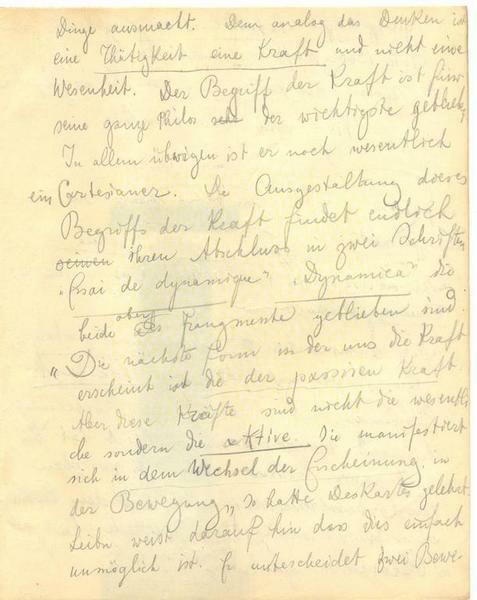 Dinge ausmacht. Dem analog das Denken ist
eine Thätigkeit eine Kraft und nicht eine
Wesenheit. Der Begriff der Kraft ist für
seine ganze Philos der wichtigste geblieb.
In allem übrigen ist er noch wesentlich
ein Cartesianer. Die Ausgestaltung dieses
Begriffs der Kraft findet endlich
seinen ihren Abschluss in zwei Schriften
"Essai de dynamique" "Dynamica" die
beide aber Fragmente geblieben sind.
"Die nächste Form in der uns die Kraft
erscheint ist die der passiven Kraft
Aber diese Kräfte sind nicht die wesentli
che sondern die aktive. Die manifestiert
sich in dem Wechsel der Erscheinung, in
der Bewegung" So hatte Deskartes gelehrt.
Leibn weist darauf hin dass dies einfach
unmöglich ist. Er unterscheidet zwei Bewe-